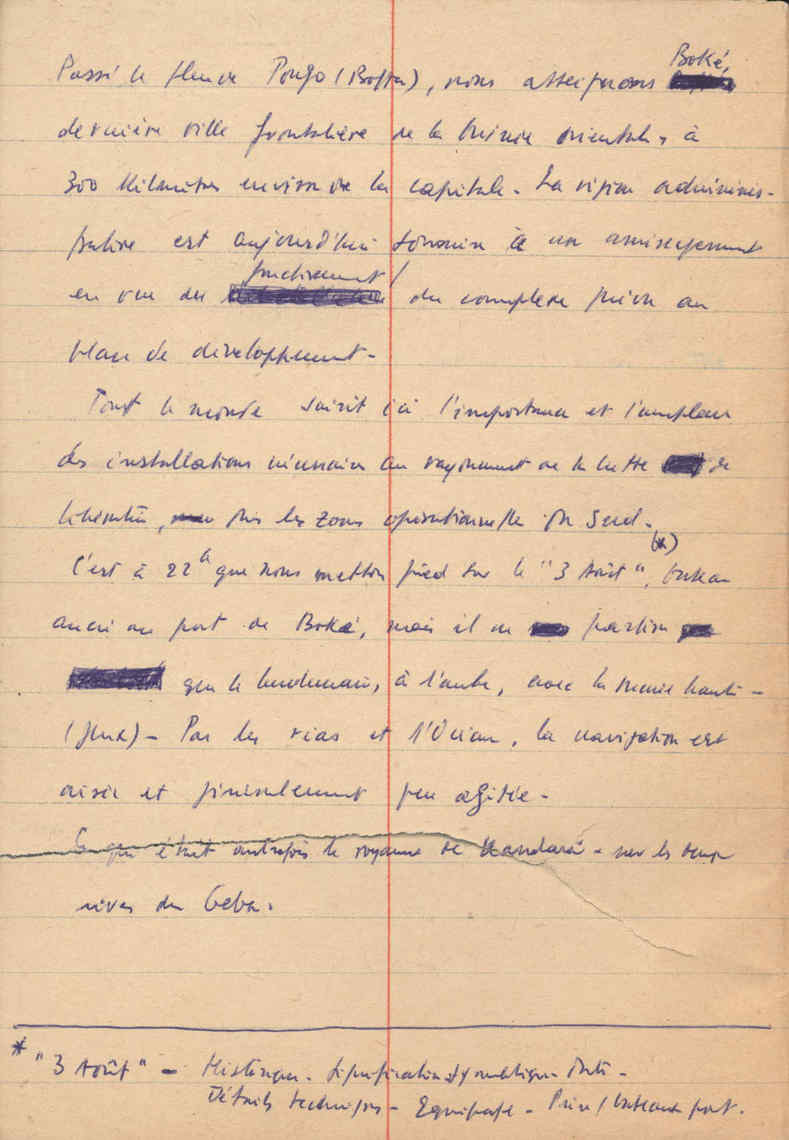 Boké,
Passé le fleuve Pongo (Boffa), nous atteignons
dernière ville frontalière de la Guinée orientale, à
300 kilomètres environ de la capitale. La région adminis-
trative est aujourd'hui à un aménagement
fonctionnement
en vue du du complexe prévu au
plan de développement.
Tout le monde saisit ici l'importance et l'ampleur
des installations nécessaires au rayonnement de la lutte de
libération, des les zones opérationnelles du Sud.
(*)
C'est à 22h que nous mettons pied sur le "3 Août", bateau
ancré au port de Boké, mais il ne partira
que le lendemain, à l'aube, avec la marée haute
(flux) - Par les rias et l'Océan, la navigation est
aisée et généralement peu agitée -
Ce qui était autrefois le royaume de Kandara - sur les deux
rives du Geba.
* "3 Août" - Historique - Signification symbolique Date -
Détails techniques - Equipage - Prix / bateaux port.